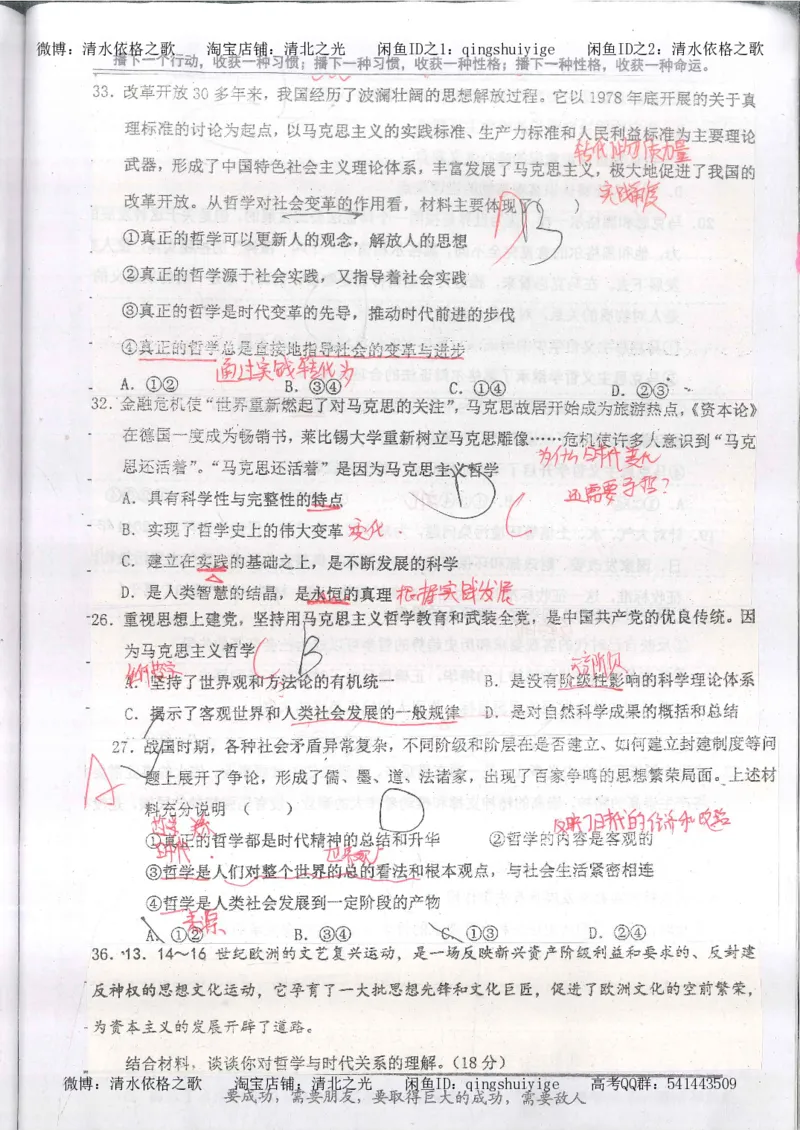 微博：清水依格之歌 淘宝店铺：清北之光 闲鱼ID之1：qingshuiyige 闲鱼ID之2：清水依格之歌
播下一个行动，收获一种习惯；播下一种习惯，收获一种性格；播下一种性格，收获一种命运。
33．改革开放 30 多年来，我国经历了波澜壮阔的思想解放过程。它以 1978 年底开展的关于真
理标准的讨论为起点，以马克思主义的实践标准、生产力标准和人民利益标准为主要理论
转化物质力量
武器，形成了中国特色社会主义理论体系，丰富发展了马克思主义，极大地促进了我国的
实践
改革开放。从哲学对社会变革的作用看，材料主要体现了（ ）
B
①真正的哲学可以更新人的观念，解放人的思想
②真正的哲学源于社会实践，又指导着社会实践
③真正的哲学是时代变革的先导，推动时代前进的步伐
④真正的哲学总是直接地指导社会的变革与进步
通过实践转化为
A．①② B．③④ C．①④ D．②③
32．金融危机使“世界重新燃起了对马克思的关注”，马克思故居开始成为旅游热点，《资本论》
在德国一度成为畅销书，莱比锡大学重新树立马克思雕像……危机使许多人意识到“马克
为什么
思还活着”。“马克思还活着”是因为马克思主义哲学
D
还需要了哲？
A．具有科学性与完整性的特点
B．实现了哲学史上的伟大变革 变化
C．建立在实践的基础之上，是不断发展的科学
D．是人类智慧的结晶，是永恒的真理 根据实践发展
26．重视思想上建党，坚持用马克思主义哲学教育和武装全党，是中国共产党的优良传统。因
为马克思主义哲学
B
A．坚持了世界观和方法论的有机统一 B．是没有阶级性影响的科学理论体系
C．揭示了客观世界和人类社会发展的一般规律 D．是对自然科学成果的概括和总结
27．战国时期，各种社会矛盾异常复杂，不同阶级和阶层在是否建立、如何建立封建制度等问
A
题上展开了争论，形成了儒、墨、道、法诸家，出现了百家争鸣的思想繁荣局面。上述材
料充分说明（ ）
反映了时代的经济和政治
①真正的哲学都是时代精神的总结和升华 ②哲学的内容是客观的
时代
世界观
③哲学是人们对整个世界的总的看法和根本观点，与社会生活紧密相连
④哲学是人类社会发展到一定阶段的产物
A．①② B．③④ C．①③ D．②④
36．13．14～16 世纪欧洲的文艺复兴运动，是一场反映新兴资产阶级利益和要求的、反封建
反神权的思想文化运动，它孕育了一大批思想先锋和文化巨匠，促进了欧洲文化的空前繁荣，
为资本主义的发展开辟了道路。
结合材料，谈谈你对哲学与时代关系的理解。（18 分）
微博：清水依格之歌 淘宝店铺：清北之光 闲鱼ID：qingshuiyige 高考QQ群：541443509
要成功，需要朋友，要取得巨大的成功，需要敌人